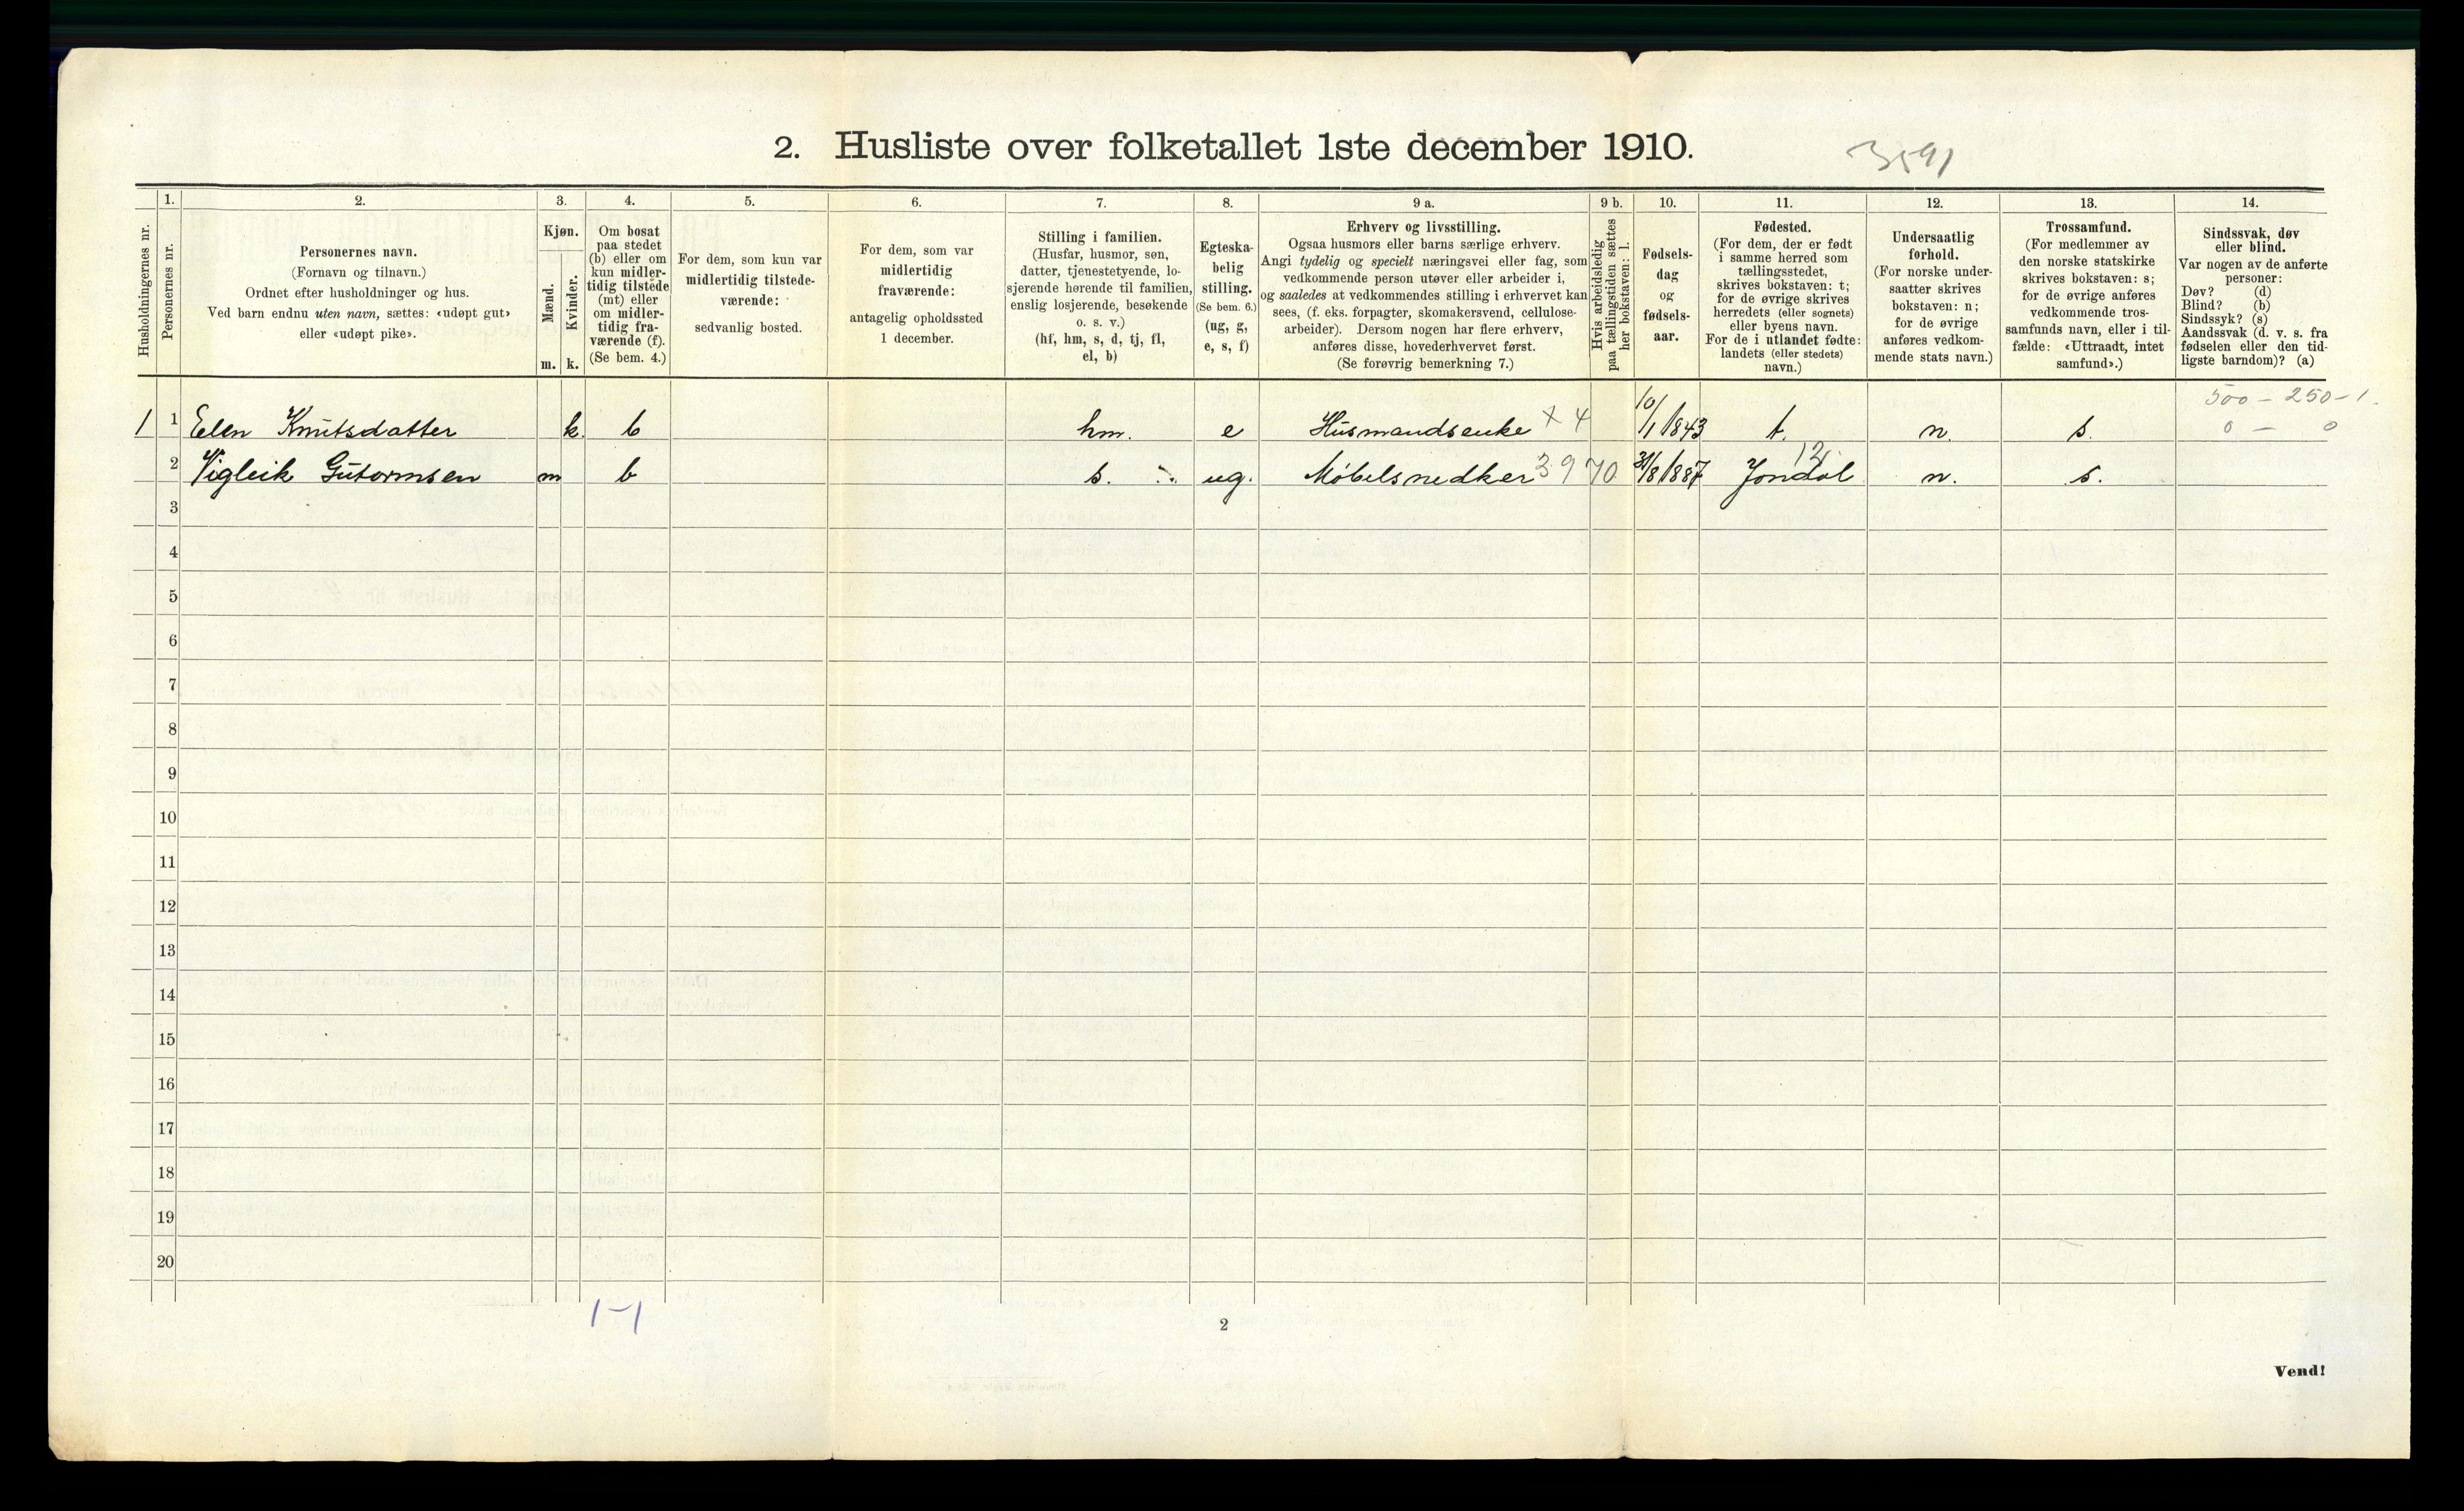 2. Husliste over folketallet 1ste december 1910.
3591
Husholdningernes nr.
1.
Personernes nr.
2.
Personernes navn.
(Fornavn og tilnavn.)
Ordnet efter husholdninger og hus.
Ved barn endnu uten navn, sættes: «udøpt gut»
eller «udøpt pike».
3.
Kjøn.
Mænd.
Kvinder.
m. k.
4.
Om bosat
paa stedet
(b) eller om
kun midler-
tidig tilstede
(mt) eller
om midler-
tidig fra-
værende (f).
(Se bem. 4.)
5.
For dem, som kun var
midlertidig tilstede-
værende:
sedvanlig bosted.
6.
For dem, som var
midlertidig
fraværende:
antagelig opholdssted
1 december.
7.
Stilling i familien.
(Husfar, husmor, søn,
datter, tjenestetyende, lo-
sjerende hørende til familien,
enslig losjerende, besøkende
o. s. v.)
(hf, hm, s, d, tj, fl,
el, b)
8.
Egteska-
belig
stilling.
(Se bem. 6.)
(ug, g,
e, s, f)
9 a.
Erhverv og livsstilling.
Ogsaa husmors eller barns særlige erhverv.
Angi tydelig og specielt næringsvei eller fag, som
vedkommende person utøver eller arbeider i,
og saaledes at vedkommendes stilling i erhvervet kan
sees, (f. eks. forpagter, skomakersvend, cellulose-
arbeider). Dersom nogen har flere erhverv,
anføres disse, hovederhvervet først.
(Se forøvrig bemerkning 7.)
9 b.
Hvis arbeidsledig
paa tællingstiden sættes
her bokstaven: l.
10.
Fødsels-
dag
og
fødsels-
aar.
11.
Fødested.
(For dem, der er født
i samme herred som
tællingsstedet,
skrives bokstaven: t;
for de øvrige skrives
herredets (eller sognets)
eller byens navn.
For de i utlandet fødte:
landets (eller stedets)
navn.)
12.
Undersaatlig
forhold.
(For norske under-
saatter skrives
bokstaven: n;
for de øvrige
anføres vedkom-
mende stats navn.)
13.
Trossamfund.
(For medlemmer av
den norske statskirke
skrives bokstaven: s;
for de øvrige anføres
vedkommende tros-
samfunds navn, eller i til-
fælde: «Uttraadt, intet
samfund».)
14.
Sindssvak, døv
eller blind.
Var nogen av de anførte
personer:
Døv? (d)
Blind? (b)
Sindssyk? (s)
Aandssvak (d. v. s. fra
fødselen eller den tid-
ligste barndom)? (a)
500 - 250 - 1.
1 1 Elen Knutsdatter k. b hm. e Husmandsenke X 4 10/1 1843 t. n. s. 0 - 0
12
2 Vigleik Gutormsen m b s. ug. Møbelsnedker 3970 31/8 1887 Jondal n. s.
3
4
5
6
7
8
9
10
11
12
13
14
15
16
17
18
19
20
1-1
2
Vend!